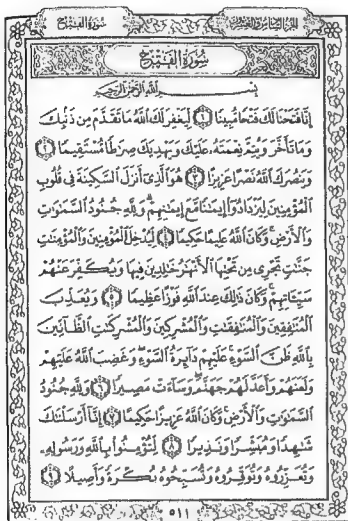 الجزء السادس والعشرون سورة الفتح
سورة الفتح
بسم الله الرحمن الرحيم
إِنَّا فَتَحْنَا لَكَ فَتْحًا مُّبِينًا ١ لِّيَغْفِرَ لَكَ اللَّهُ مَا تَقَدَّمَ مِن ذَنۢبِكَ
وَمَا تَأَخَّرَ وَيُتِمَّ نِعْمَتَهُۥ عَلَيْكَ وَيَهْدِيَكَ صِرَٰطًا مُّسْتَقِيمًا ٢
وَيَنصُرَكَ اللَّهُ نَصْرًا عَزِيزًا ٣ هُوَ الَّذِىٓ أَنزَلَ السَّكِينَةَ فِى قُلُوبِ
الْمُؤْمِنِينَ لِيَزْدَادُوٓا۟ إِيمَٰنًا مَّعَ إِيمَٰنِهِمْ وَلِلَّهِ جُنُودُ السَّمَٰوَٰتِ
وَالْأَرْضِ وَكَانَ اللَّهُ عَلِيمًا حَكِيمًا ٤ لِّيُدْخِلَ الْمُؤْمِنِينَ وَالْمُؤْمِنَٰتِ
جَنَّٰتٍ تَجْرِى مِن تَحْتِهَا الْأَنْهَٰرُ خَٰلِدِينَ فِيهَا وَيُكَفِّرَ عَنْهُمْ
سَيِّـَٔاتِهِمْ وَكَانَ ذَٰلِكَ عِندَ اللَّهِ فَوْزًا عَظِيمًا ٥ وَيُعَذِّبَ
الْمُنَٰفِقِينَ وَالْمُنَٰفِقَٰتِ وَالْمُشْرِكِينَ وَالْمُشْرِكَٰتِ الظَّآنِّينَ
بِاللَّهِ ظَنَّ السَّوْءِ عَلَيْهِمْ دَآئِرَةُ السَّوْءِ وَغَضِبَ اللَّهُ عَلَيْهِمْ
وَلَعَنَهُمْ وَأَعَدَّ لَهُمْ جَهَنَّمَ وَسَآءَتْ مَصِيرًا ٦ وَلِلَّهِ جُنُودُ
السَّمَٰوَٰتِ وَالْأَرْضِ وَكَانَ اللَّهُ عَزِيزًا حَكِيمًا ٧ إِنَّآ أَرْسَلْنَٰكَ
شَٰهِدًا وَمُبَشِّرًا وَنَذِيرًا ٨ لِّتُؤْمِنُوا۟ بِاللَّهِ وَرَسُولِهِۦ
وَتُعَزِّرُوهُ وَتُوَقِّرُوهُ وَتُسَبِّحُوهُ بُكْرَةً وَأَصِيلًا ٩
٥١١